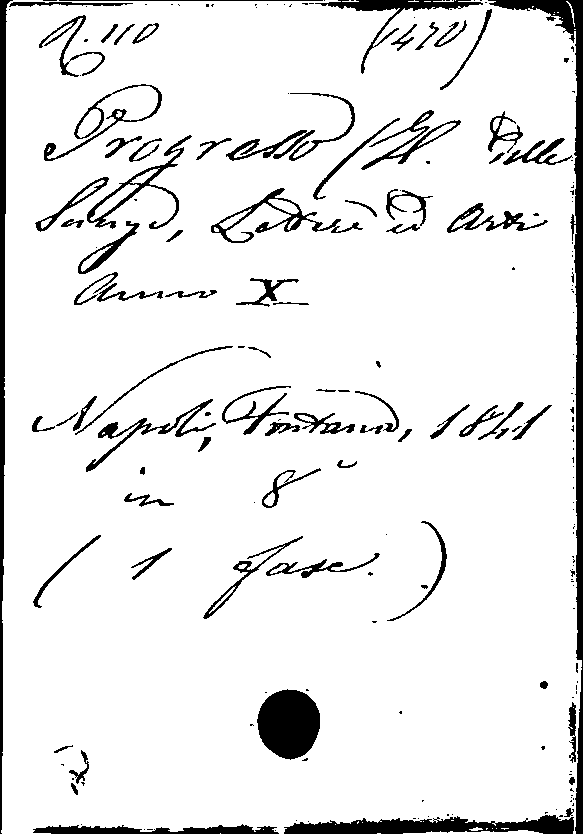 R. 110 (1470)
Progresso (Il. delle
Scienze, Lettere ed Arti
Anno X
Napoli, Fontana, 1841
in 8°
(1 fasc.)